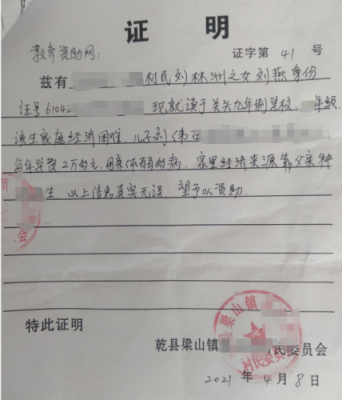 证 明
证字第 41 号
教育资助网：
兹有 村民刘林洲之女刘燕身份
证号61042 现就读于关头九年制学校， 年级
该生家庭经济困难 儿子刘伟在
每年学费2万多元，母亲体弱多病，家里经济来源靠父亲种
生，以上信息真实无误，望予以资助。
特此证明
乾县梁山镇 民委员会
2021 年 4 月 8 日
梁山镇
村民委员